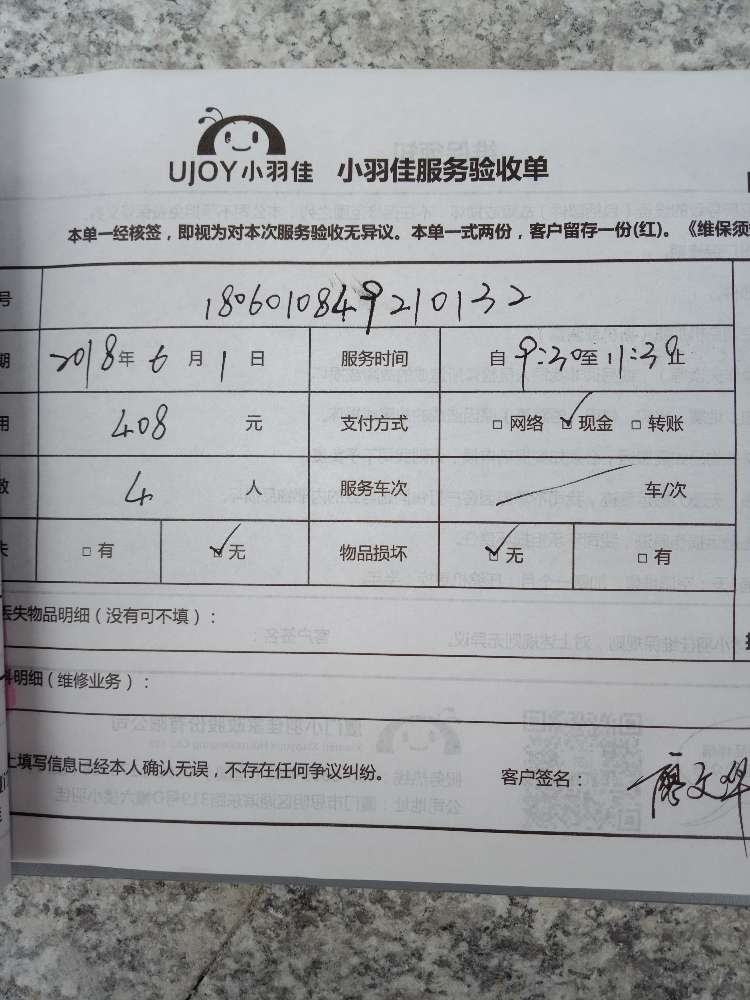 UJOY小羽佳 小羽佳服务验收单
本单一经核签，即视为对本次服务验收无异议。本单一式两份，客户留存一份(红)。《维保须
号 1806010849210132
期 2018年6月1日 服务时间 自9:30至11:30止
用 408元 支付方式 □网络 ☑现金 □转账
数 4人 服务车次 / 车/次
失 □有 ☑无 物品损坏 ☑无 □有
丢失物品明细（没有可不填）：
料明细（维修业务）：
上填写信息已经本人确认无误，不存在任何争议纠纷。 客户签名：